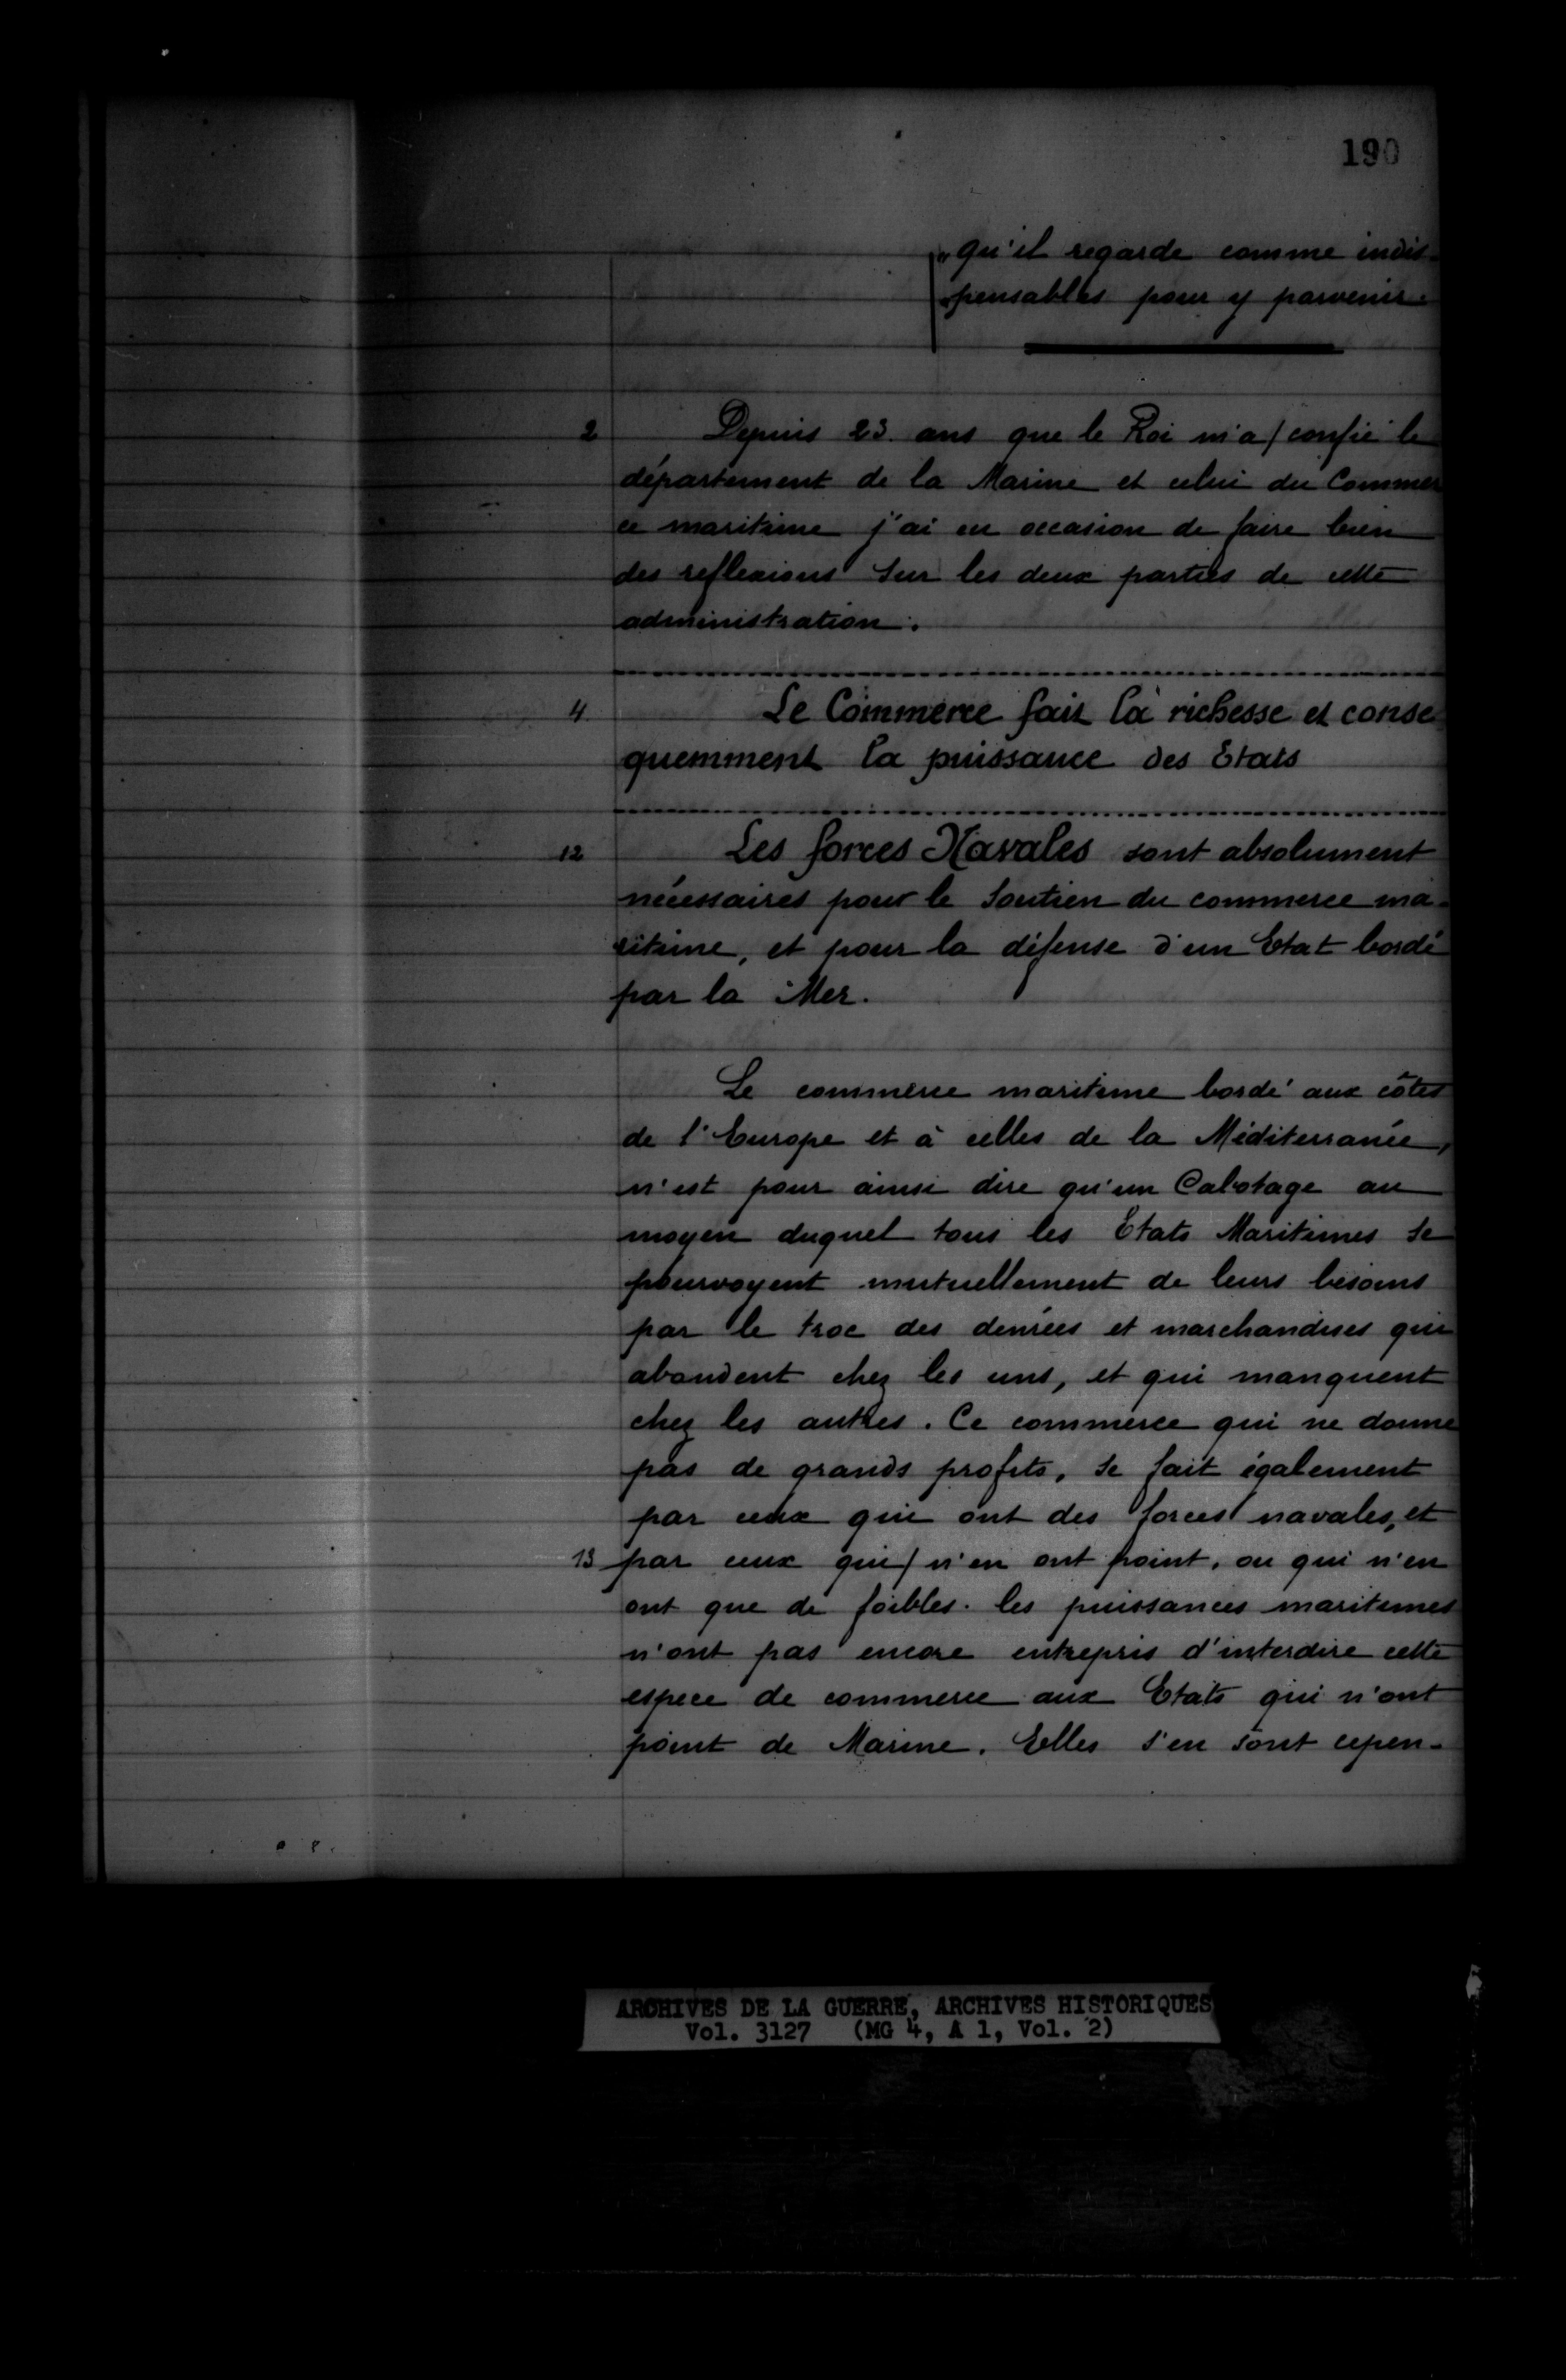 190
"qu'il regarde comme indis-
"pensables pour y parvenir.
2 Depuis 23 ans que le Roi m'a/confié le
département de la Marine et celui du Commer
ce maritime j'ai eu occasion de faire bien
des reflexions sur les deux parties de cette
administration.
4 Le Commerce fait la richesse et conse
quemment la puissance des Etats
12 Les forces Navales sont absolument
nécessaires pour le soutien du commerce ma-
ritime, et pour la défense d'un Etat bordé
par la Mer.
Le commerce maritime bordé aux côtes
de l'Europe et à celles de la Méditerranée,
n'est pour ainsi dire qu'un Cabotage au
moyen duquel tous les Etats Maritimes se
pourvoyent mutuellement de leurs besoins
par le troc des denrées et marchandises qui
abondent chez les uns, et qui manquent
chez les autres. Ce commerce qui ne donne
pas de grands profits, se fait également
par ceux qui ont des forces navales, et
13 par ceux qui/n'en ont point, ou qui n'en
ont que de foibles. les puissances maritimes
n'ont pas encore entrepris d'interdire cette
espece de commerce aux Etats qui n'ont
point de Marine. Elles s'en sont cepen-
ARCHIVES DE LA GUERRE, ARCHIVES HISTORIQUES
Vol. 3127 (MG 4, A 1, Vol. 2)